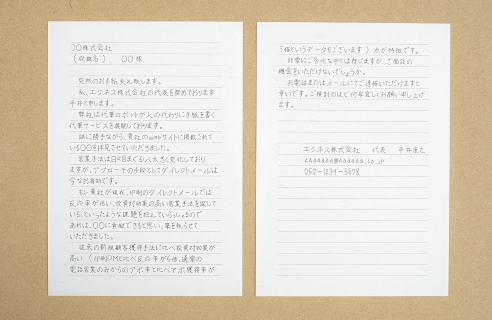 〇〇株式会社
（役職名） 〇〇 様
突然のお手紙失礼致します。
私、エクネス株式会社の代表を務めております
平井と申します。
弊社は代筆ロボットが人の代わりに手紙を書く
代筆サービスを展開しております。
誠に勝手ながら、貴社のwebサイトに掲載されて
いる〇〇を拝見させていただきました。
営業手法は日を追うごとに大きく変化しており
ますが、アプローチの手段としてダイレクトメールは
今なお有効です。
もし貴社が現在、印刷のダイレクトメールでは
反応率が低い、投資対効果の高い営業手法を探して
いる、といったような課題を抱えていらっしゃるので
あれば、〇〇に貢献できると思い、筆を執らせて
いただきました。
従来の新規顧客獲得手法に比べ投資対効果が
高い（印刷DMと比べ反応率が6倍、通常の
電話営業のみからのアポ率と比べアポ獲得率が
5倍というデータもございます）点が特徴です。
非常にご多忙な中とは存じますが、ご面談の
機会をいただけないでしょうか。
お電話またはメールにてご連絡いただけますと
幸いです。ご検討のほど何卒宜しくお願い申し上げ
ます。
エクネス株式会社 代表 平井
aaaaaaa@aaaaaa.co.jp
050-1234-5678